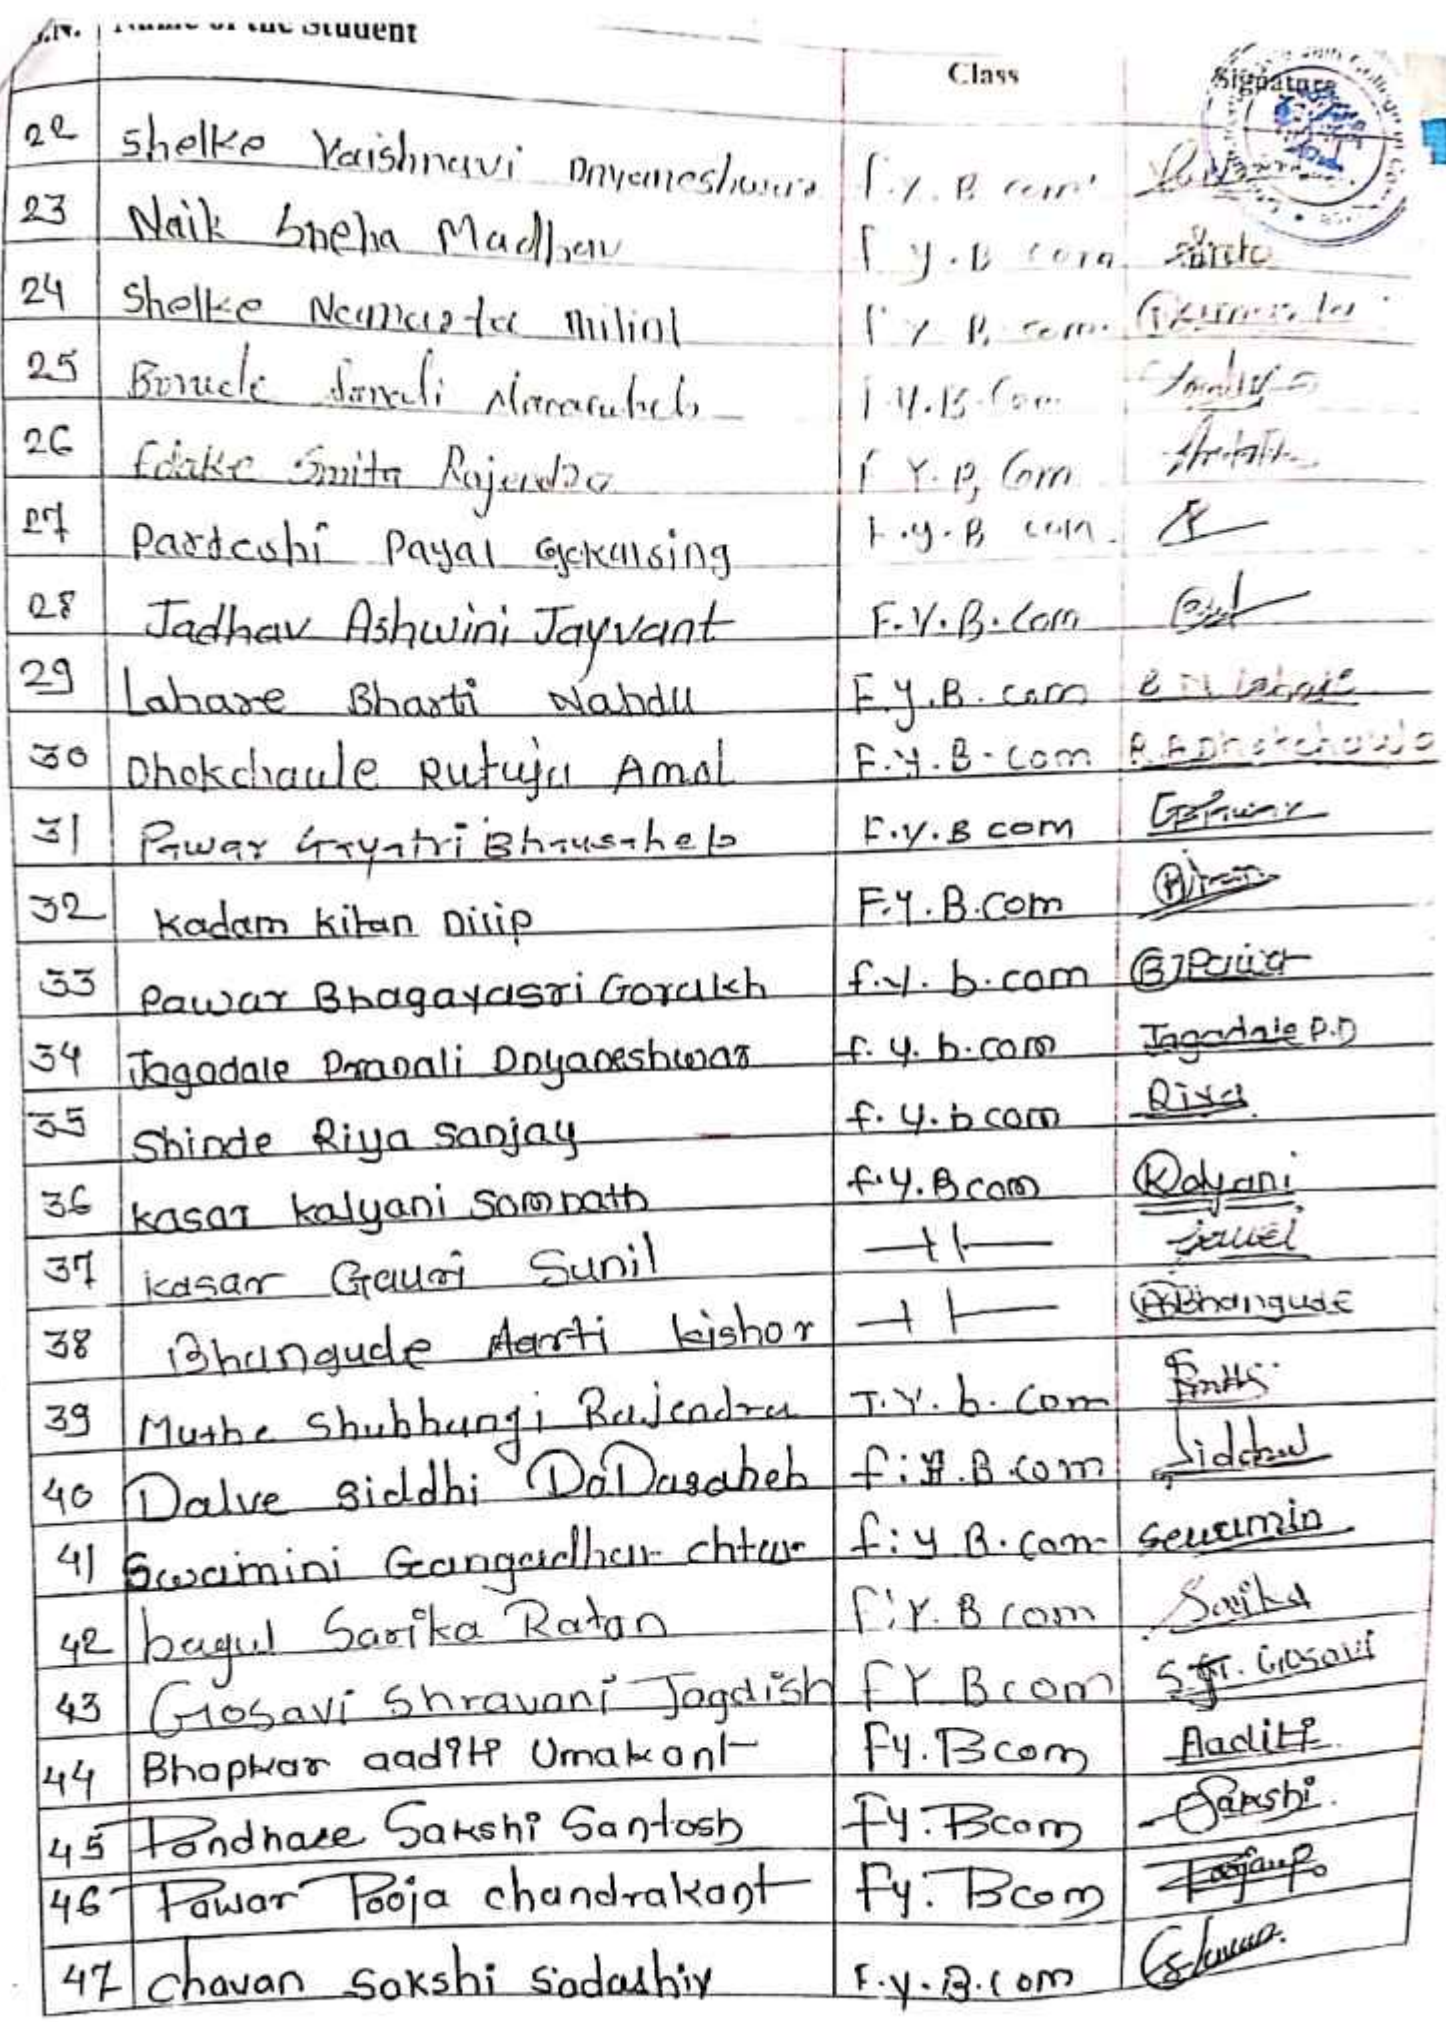 S.N. Name of the Student Class Signature
22 Shelke Vaishnavi Dnyaneshwar F.Y. B com
23 Naik Sneha Madhav F Y.B com
24 Shelke Namrata Milind F Y B. com.
25 Borude Sonali F.Y.B.Com
26 Edake Smita Rajendra F Y.B. Com
27 Pardeshi Payal Gokulsing F.y.B com.
28 Jadhav Ashwini Jayvant F.Y.B.Com
29 Lahare Bharti Nandu F.y.B.com B N Lahare
30 Dhokchaule Rutuja Amol F.y.B.com R.A.Dhokchaule
31 Pawar Gayatri Bhausaheb F.y.B com
32 Kadam Kiran Dilip F.Y.B.com
33 Pawar Bhagayasri Gorakh f.y.b.com
34 Jagadale Pranali Dnyaneshwar f.y.b.com Jagadale P.D
35 Shinde Riya Sanjay f.y.bcom Riya
36 kasar kalyani Somnath f.y.Bcom Kalyani
37 kasar Gauri Sunil —||—
38 Bhangude Aarti kishor —||— ABhangude
39 Muthe Shubhangi Rajendra T.Y.b.Com
40 Dalve Siddhi DaDasaheb f:y.B.com
41 Swamini Gangadhar f:y B.com Swamin
42 bagul Sarika Ratan F:Y.B com Sarika
43 Gosavi Shravani Jagdish FY Bcom Gosavi
44 Bhapkar aaditi Umakant Fy.Bcom Aaditi
45 Pondhare Sakshi Santosh Fy.Bcom Sakshi
46 Pawar Pooja chandrakant Fy.Bcom
47 Chavan Sakshi Sadashiv F.y.B.com